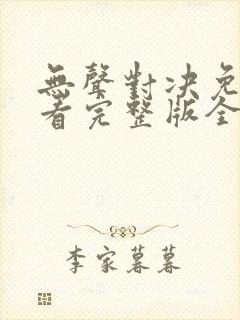 無聲對決免
看完整版全
李家暮暮